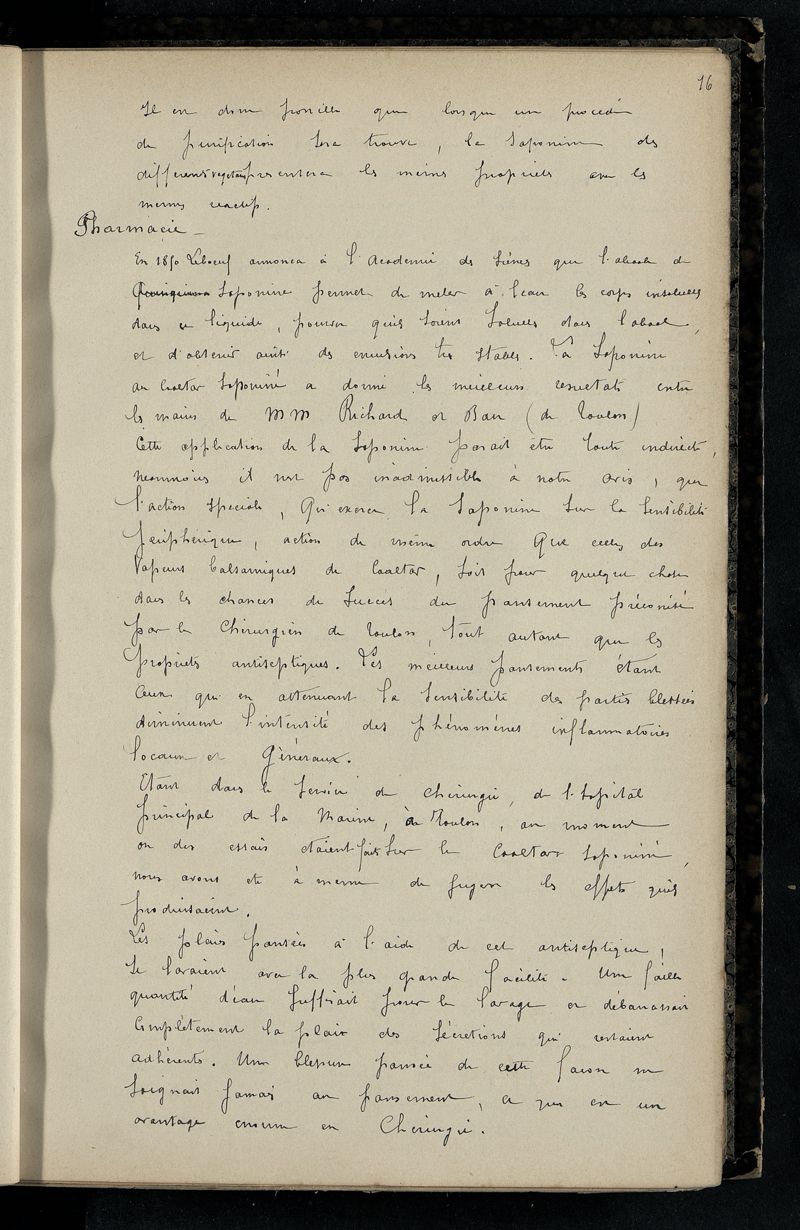 16
Il est donc possible que lorsque un procédé
de purification sera trouvé, la saponine des
differents vegetaux presentera les memes propriétés avec les
memes reactifs.
Pharmacie _
En 1850 Leboeuf annonca à l'Academie des Siénces que l'alcool de
Quinquina Saponine permet de meler à l'eau les corps insolubles
dans ce liquide, pourvu qu'ils soient solubles dans l'alcool,
et d'obtenir ainsi des emulsions tres stables. La Saponine
au Coaltar Saponiné a donné les meilleurs resultats entre
les mains de MM Richard et Bau (de Toulon)
Cette application de la Saponine parait etre toute indirecte,
neanmoins il n'est pas inadmissible à notre avis, que
l'action speciale, Qu'exerce la Saponine sur la sensibilité
peripherique, action de meme ordre que celles des
Vapeurs balsamiques de Coaltar, soit pour quelque chose
dans les chances de succes du pansement préconisé
par le Chirurgien de Toulon, tout autant que les
propriétés antiseptiques. Les meilleurs pansements étant
Ceux qui en attenuant la sensibilité des parties blessées
diminuent l'intensité des phénoménes inflammatoires
locaux et Généraux.
Etant dans le service de chirurgie, de l'hopital
principal de la Marine, de Toulon, au moment
ou des essais etaient faits sur le Coaltar saponiné,
nous avons eté à meme de juger les effets qu'ils
produisaient.
Les plaies pansées à l'aide de cet antiseptique,
se lavaient avec la plus grande facilité. Une faible
quantité d'eau suffisait pour le lavage et débarrassait
completement la plaie des sécretions qui restaient
adhérents. Une blessure pansée de cette facon ne
saignait jamais au pansement, ce que est un
avantage enorme en Chirurgie.